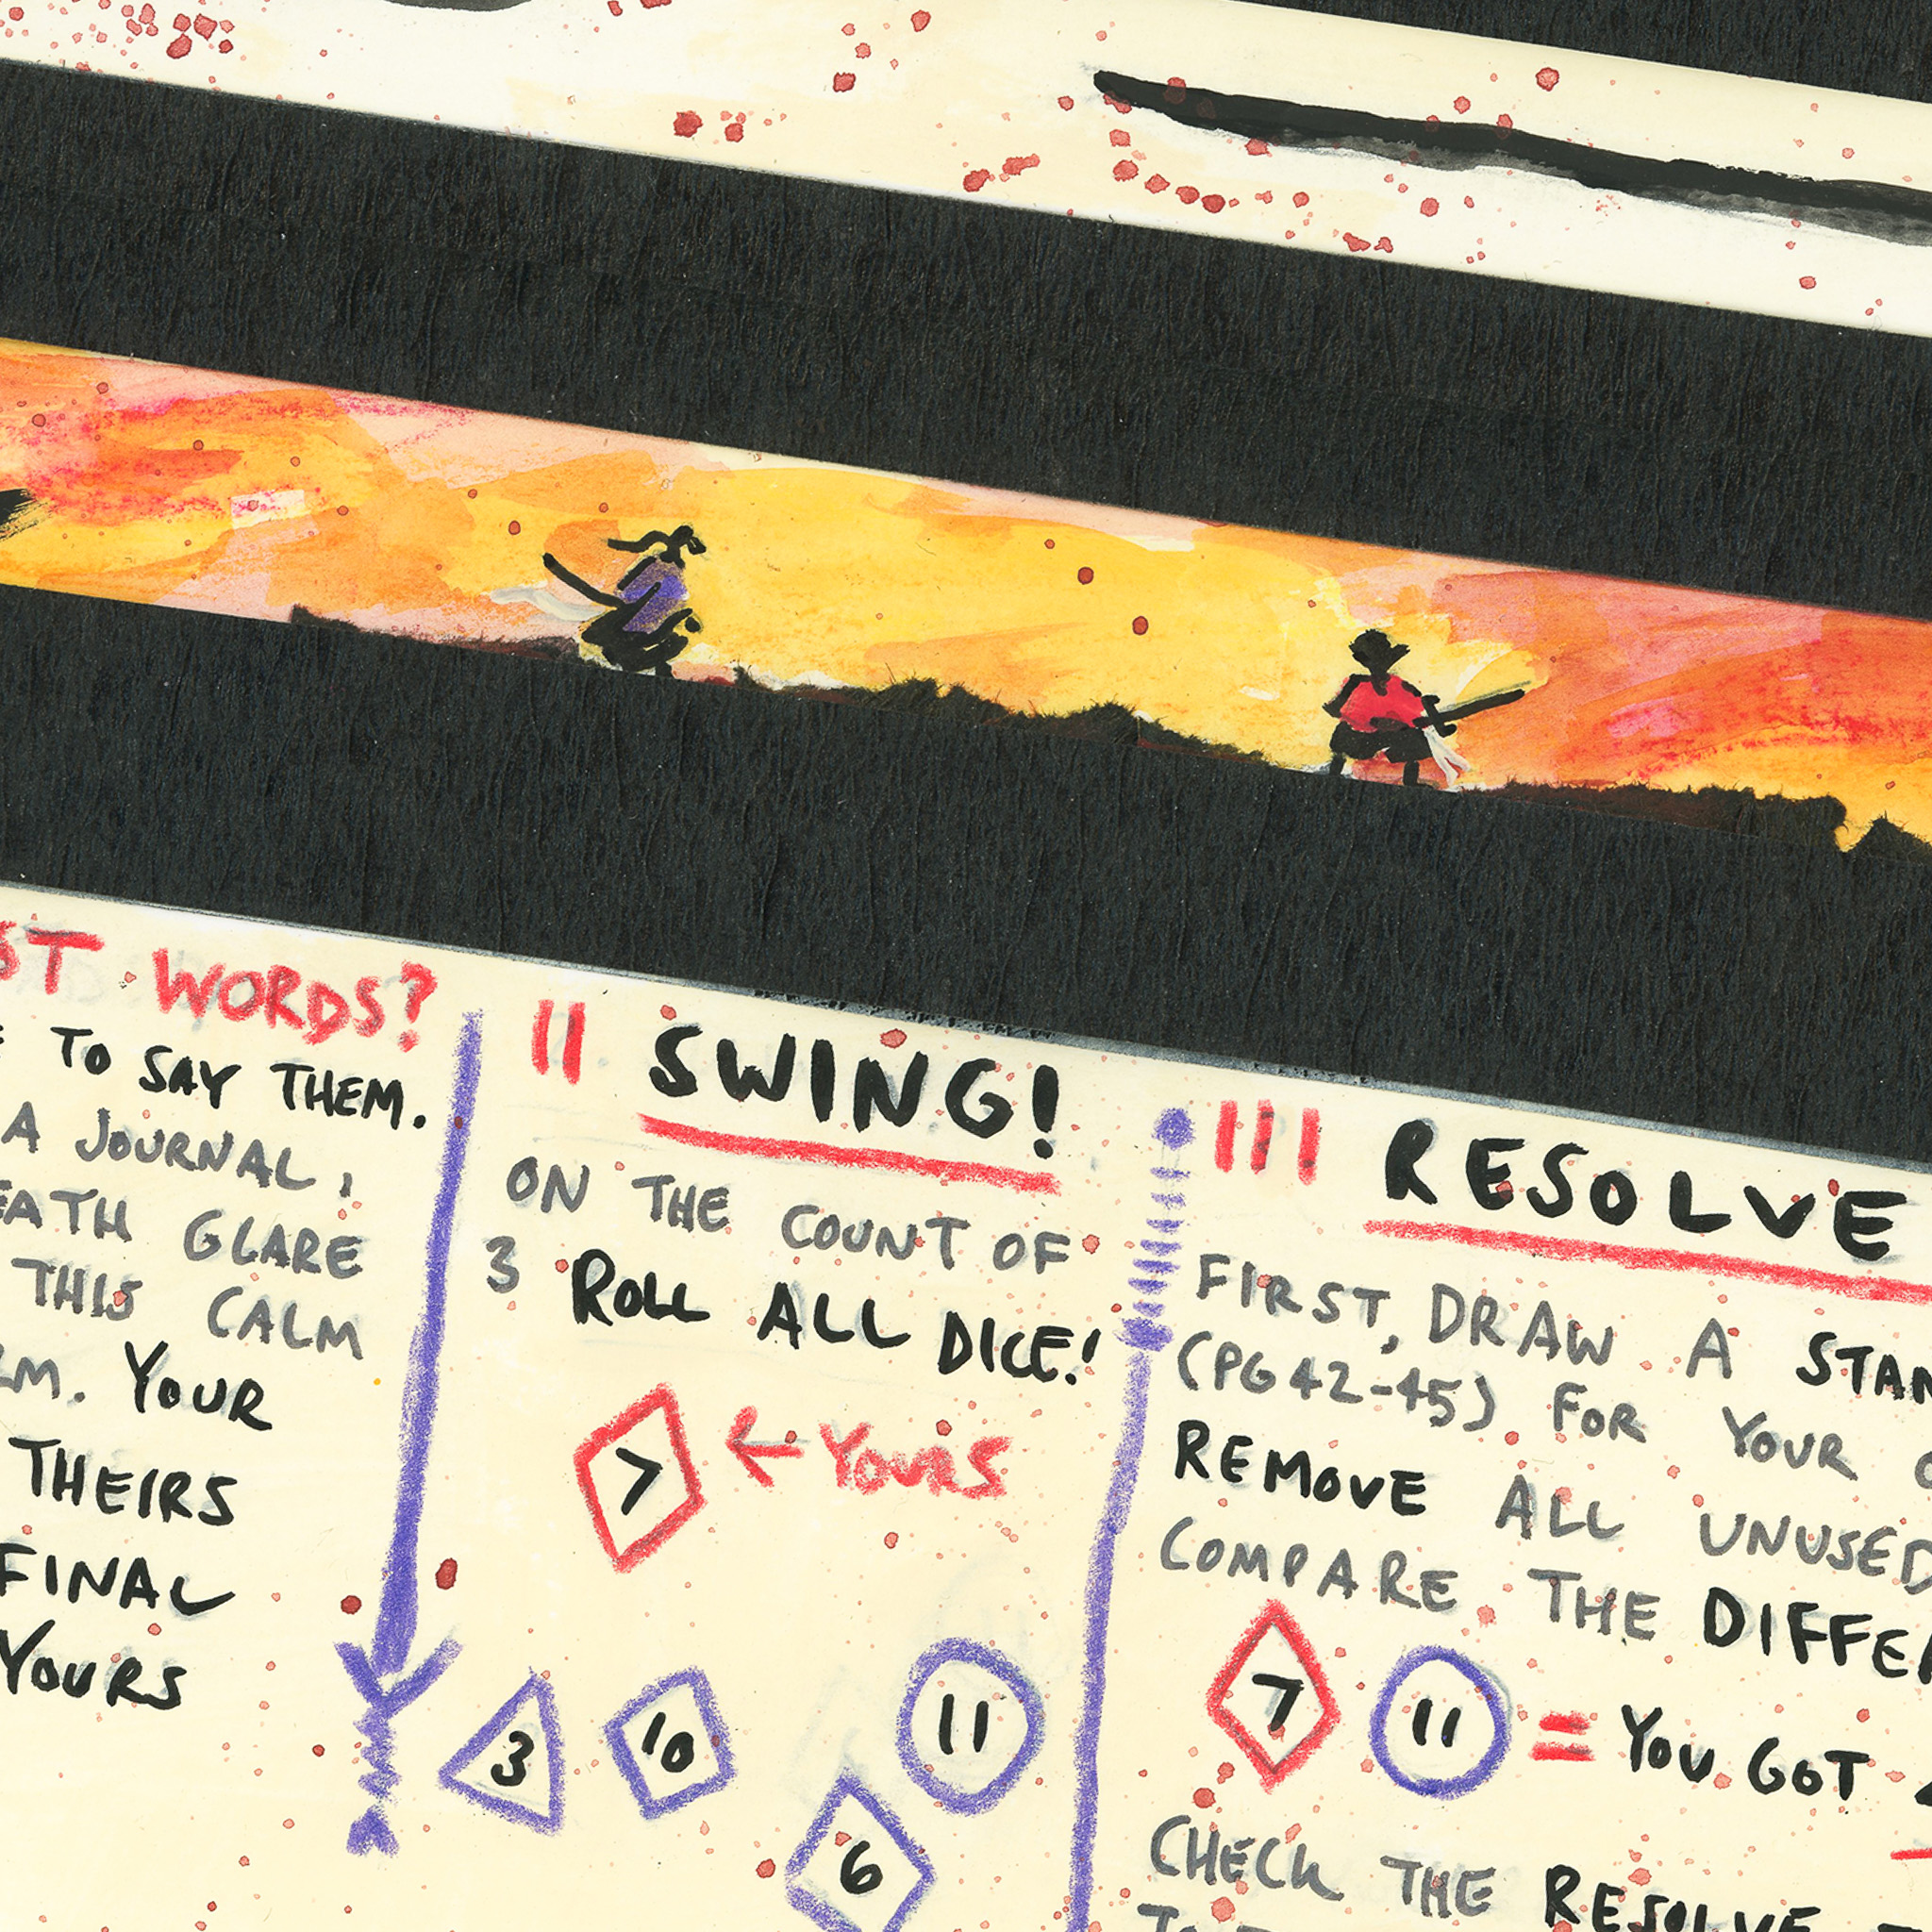 WORDS?
TO SAY THEM.
A JOURNAL,
GLARE
THIS CALM
YOUR
THEIRS
FINAL
YOURS
II SWING!
ON THE COUNT OF
3 ROLL ALL DICE!
7 ← YOURS
3 10 11
6
III RESOLVE
FIRST, DRAW A
(PG 42-45) FOR YOUR
REMOVE ALL UNUSED
COMPARE THE
7 11 = YOU GOT
CHECK THE RESOLVE